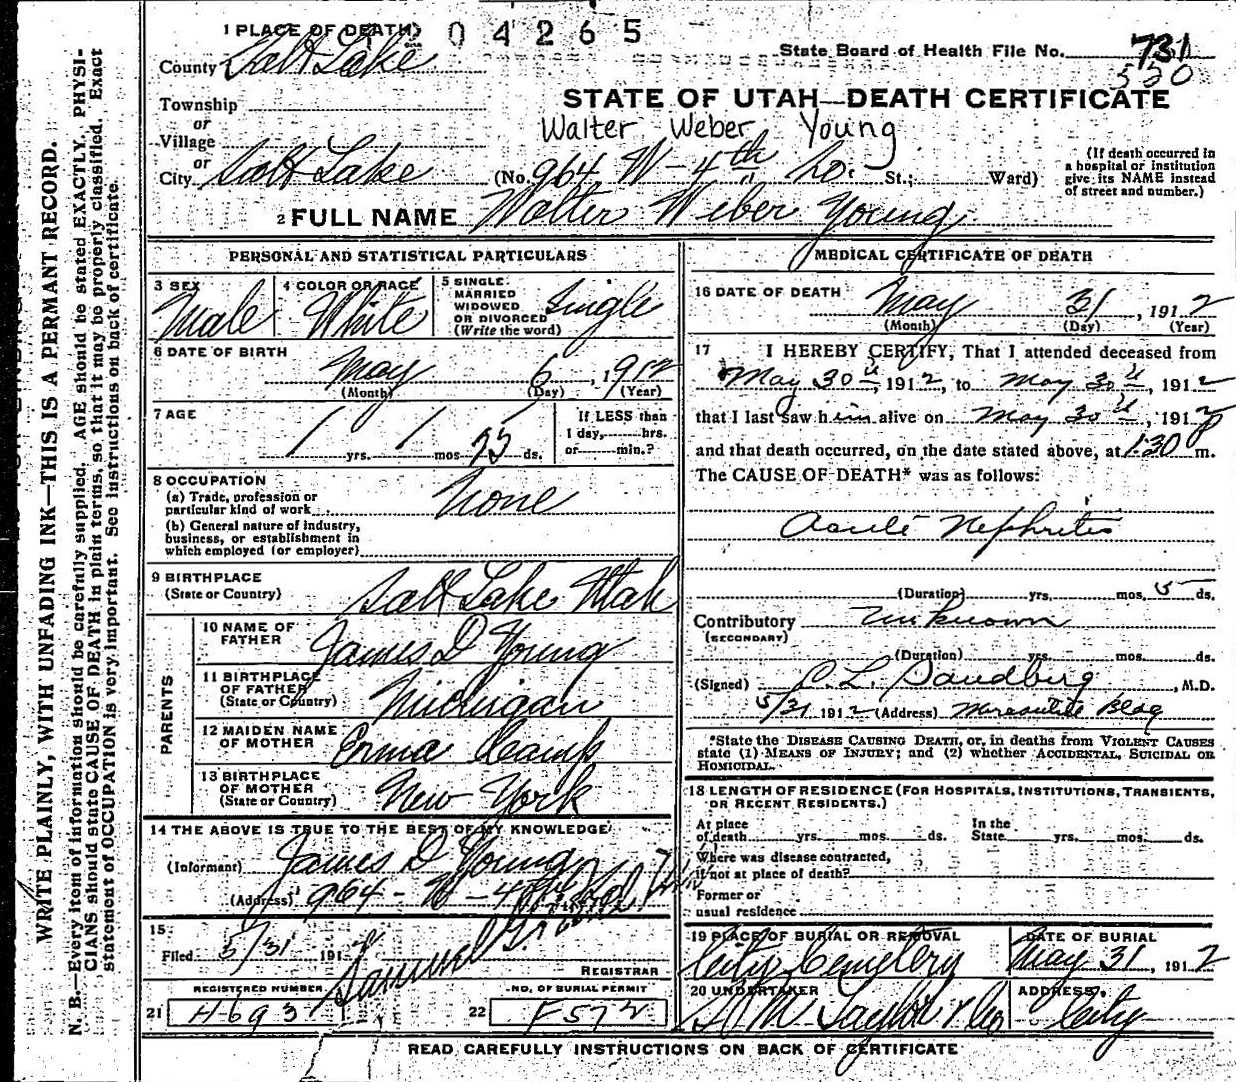 WRITE PLAINLY, WITH UNFADING INK—THIS IS A PERMANT RECORD.
N. B.—Every item of information should be carefully supplied. AGE should be stated EXACTLY. PHYSI-
CIANS should state CAUSE OF DEATH in plain terms, so that it may be properly classified. Exact
statement of OCCUPATION is very important. See instructions on back of certificate.
04265
1 PLACE OF DEATH
County Salt Lake
State Board of Health File No. 731
530
Township
or
Village
or
City Salt Lake
STATE OF UTAH—DEATH CERTIFICATE
Walter Weber Young
(No. 964 W - 4th So. St.; Ward)
(If death occurred in
a hospital or institution
give its NAME instead
of street and number.)
2 FULL NAME Walter Weber Young
PERSONAL AND STATISTICAL PARTICULARS
3 SEX
Male
4 COLOR OR RACE
White
5 SINGLE
MARRIED
WIDOWED
OR DIVORCED
(Write the word)
Single
6 DATE OF BIRTH
May 6, 1912
(Month) (Day) (Year)
7 AGE
/ yrs. / mos 25 ds.
If LESS than
1 day, hrs.
or min.?
8 OCCUPATION
(a) Trade, profession or
particular kind of work
None
(b) General nature of industry,
business, or establishment in
which employed (or employer)
9 BIRTHPLACE
(State or Country)
Salt Lake Utah
PARENTS
10 NAME OF
FATHER
James D Young
11 BIRTHPLACE
OF FATHER
(State or Country)
Michigan
12 MAIDEN NAME
OF MOTHER
Erma Camp
13 BIRTHPLACE
OF MOTHER
(State or Country)
New York
14 THE ABOVE IS TRUE TO THE BEST OF MY KNOWLEDGE
(Informant) James D Young
(Address) 964 - W - 4th So
15
Filed 5/31 191
Samuel G.
REGISTRAR
REGISTERED NUMBER
21 H693
NO. OF BURIAL PERMIT
22 F572
MEDICAL CERTIFICATE OF DEATH
16 DATE OF DEATH
May 31, 1912
(Month) (Day) (Year)
17 I HEREBY CERTIFY, That I attended deceased from
May 30th, 1912, to May 30th, 1912
that I last saw him alive on May 30th, 1912
and that death occurred, on the date stated above, at 1:30 m.
The CAUSE OF DEATH* was as follows:
Acute Nephritis
(Duration) yrs. mos. 5 ds.
Contributory Unknown
(SECONDARY)
(Duration) yrs. mos. ds.
(Signed) C. L. Sandberg, M.D.
5/31 1912 (Address) Bldg
*State the DISEASE CAUSING DEATH, or, in deaths from VIOLENT CAUSES
state (1) MEANS OF INJURY; and (2) whether ACCIDENTAL, SUICIDAL OR
HOMICIDAL.
18 LENGTH OF RESIDENCE (FOR HOSPITALS, INSTITUTIONS, TRANSIENTS,
OR RECENT RESIDENTS.)
At place
of death yrs. mos. ds.
In the
State yrs. mos. ds.
Where was disease contracted,
if not at place of death?
Former or
usual residence
19 PLACE OF BURIAL OR REMOVAL
City Cemetery
DATE OF BURIAL
May 31, 1912
20 UNDERTAKER
S. M. Taylor & Co
ADDRESS
City
READ CAREFULLY INSTRUCTIONS ON BACK OF CERTIFICATE